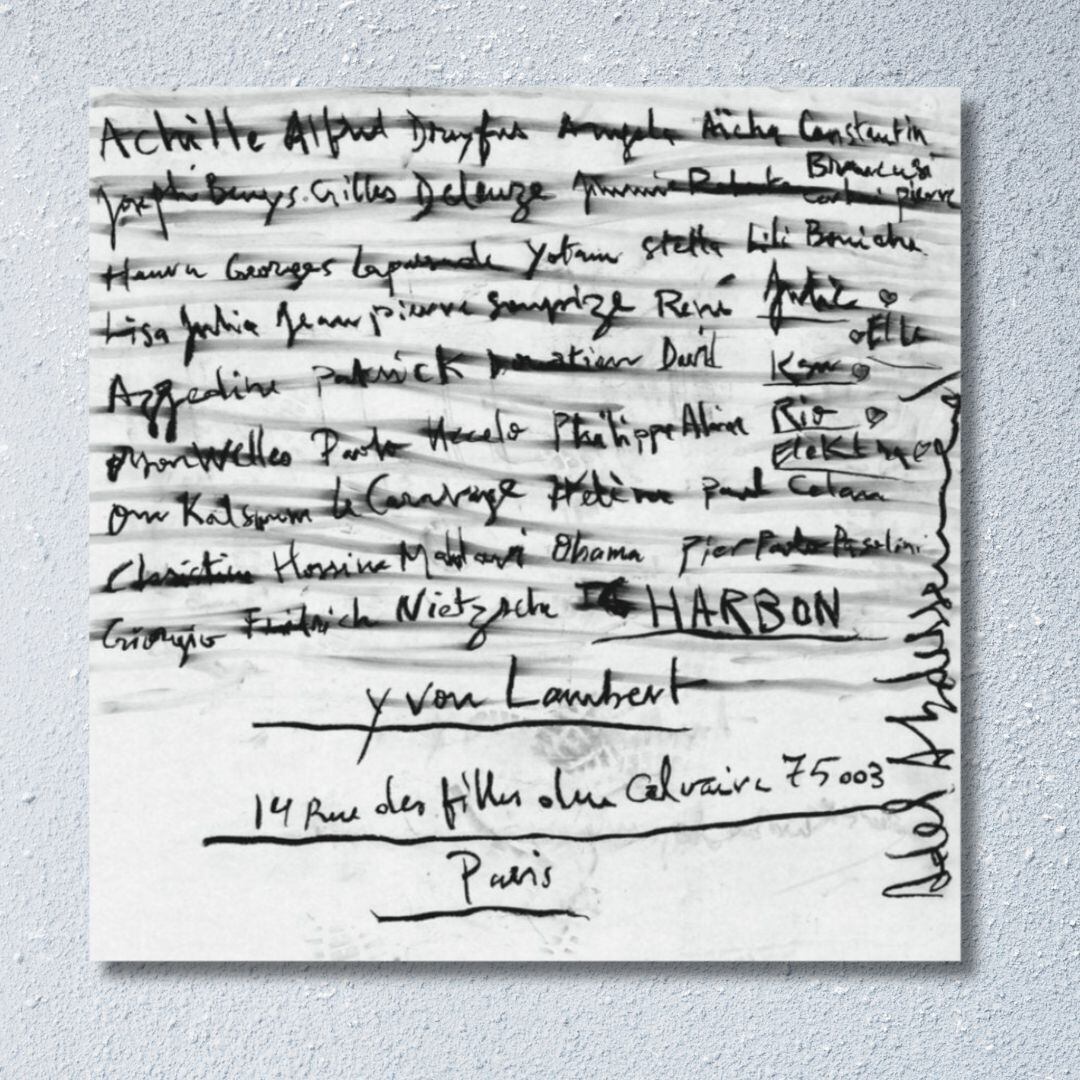 Achille Alfred Dreyfus Angela Aïcha Constantin
Brancusi
Joseph Beuys. Gilles Deleuze Jimmie pierre
Georges Lapassade Yotam stella Lili Boniche
Lisa Julia Jean pierre Surprize René Julie
Elle
Azzedine Patrick David
Orson Welles Paolo Uccelo Philippe Alain Rio
Elektra
Om Kalsoum le Caravage Hélène paul Celan
Christine Hossine Mahdaoui Obama Pier Paolo Pasolini
Giorgio Friedrich Nietzsche HARBON
yvon Lambert
14 Rue des filles du Calvaire 75003
Paris
Adel Abdessemed